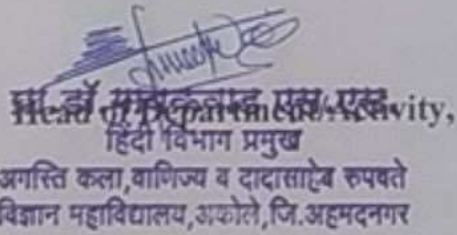 प्रा.डॉ.गायकवाड एस.एस.
Head of Department/Activity,
हिंदी विभाग प्रमुख
अगस्ति कला,वाणिज्य व दादासाहेब रुपवते
विज्ञान महाविद्यालय,अकोले,जि.अहमदनगर